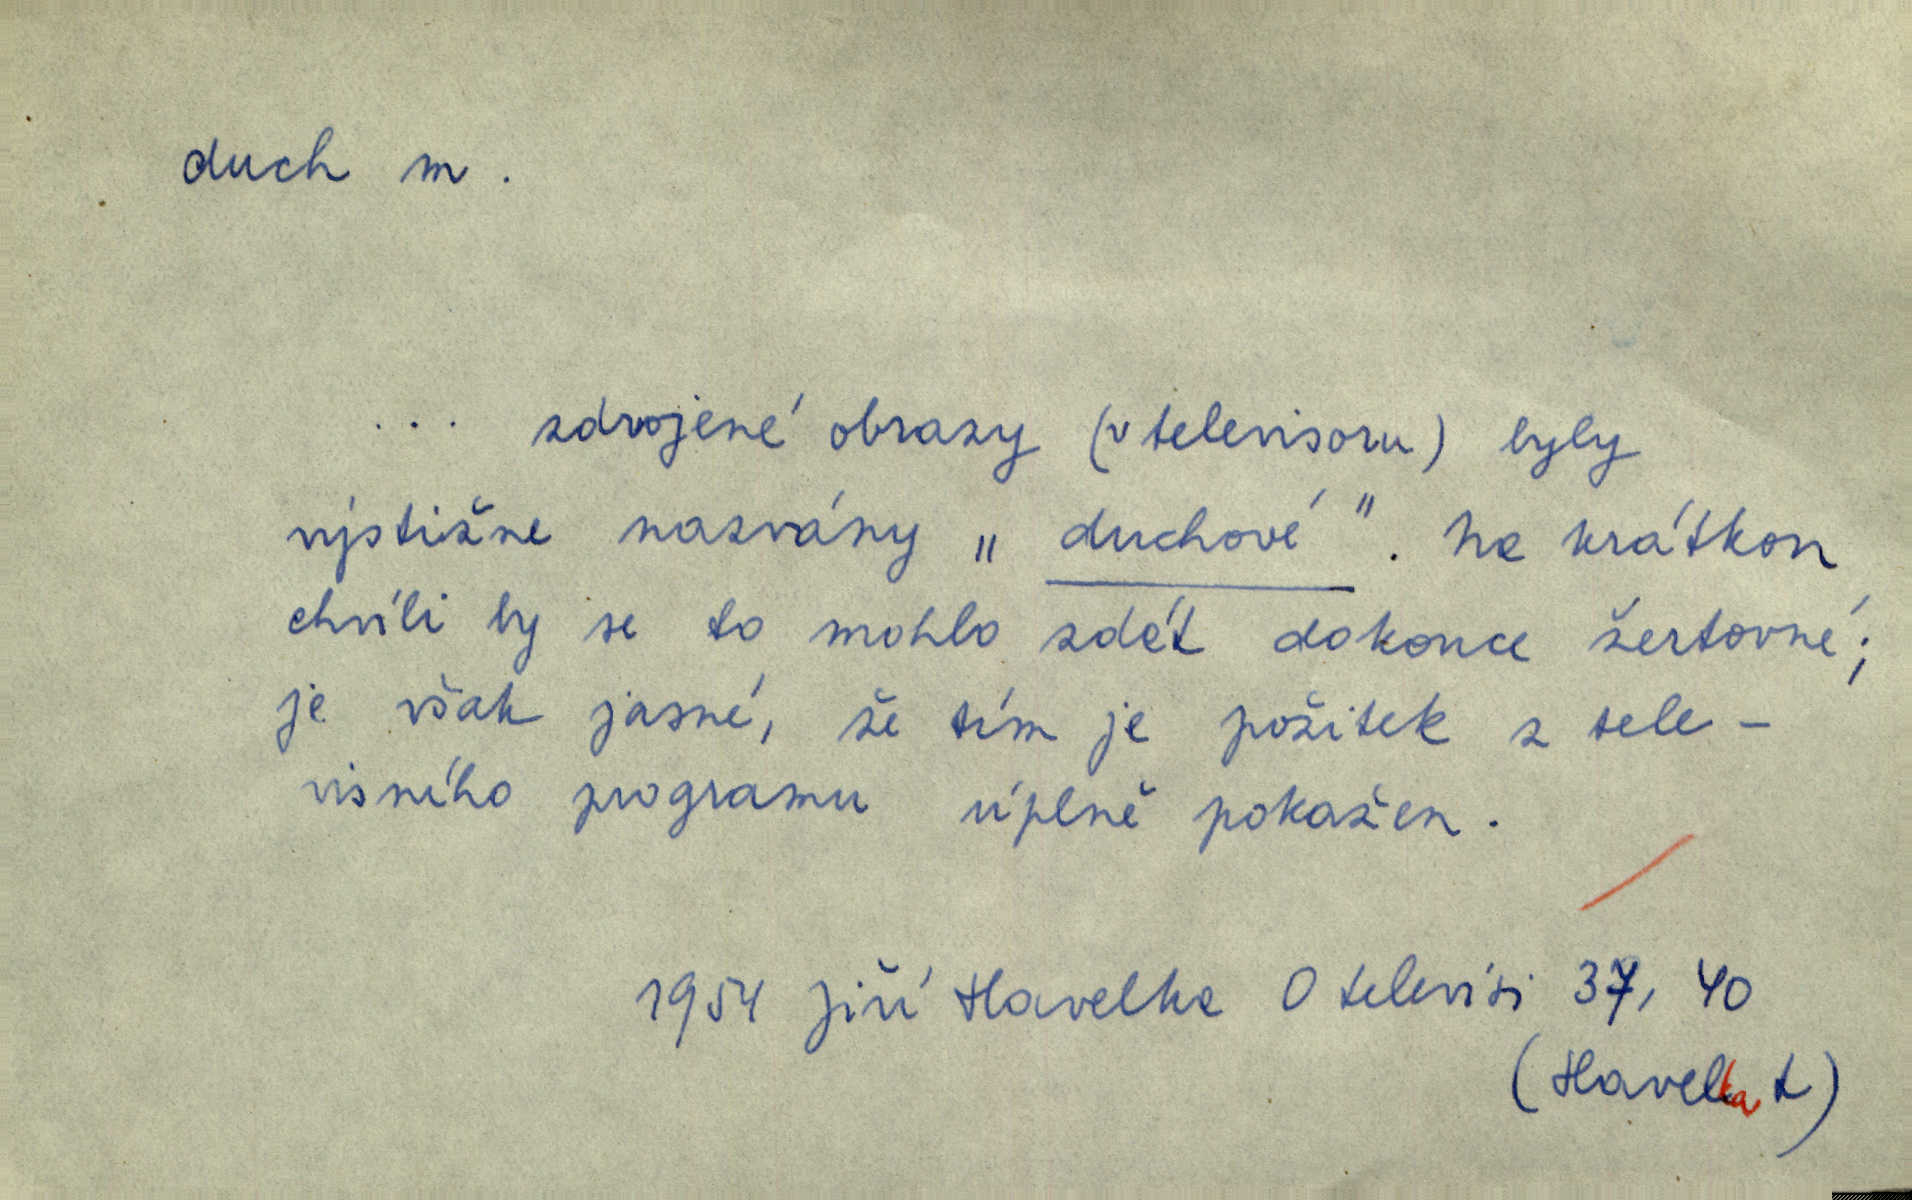 duch m.
... zdvojené obrazy (v televisoru) byly
výstižne nazvány „duchové". Na krátkou
chvíli by se to mohlo zdát dokonce žertovné;
je však jasné, že tím je požitek z tele-
visního programu úplně pokažen.
1954 Jiří Havelka O televisi 37, 40
(Havelka t)